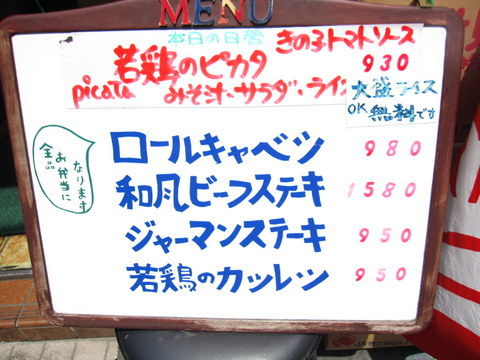 MENU
本日の日替
きの子トマトソース
若鶏のピカタ 930
picata みそ汁・サラダ・ライス
大盛ライス
OK 無料です
ロールキャベツ 980
和風ビーフステキ 1580
ジャーマンステーキ 950
若鶏のカツレツ 950
全品
お弁当に
なります